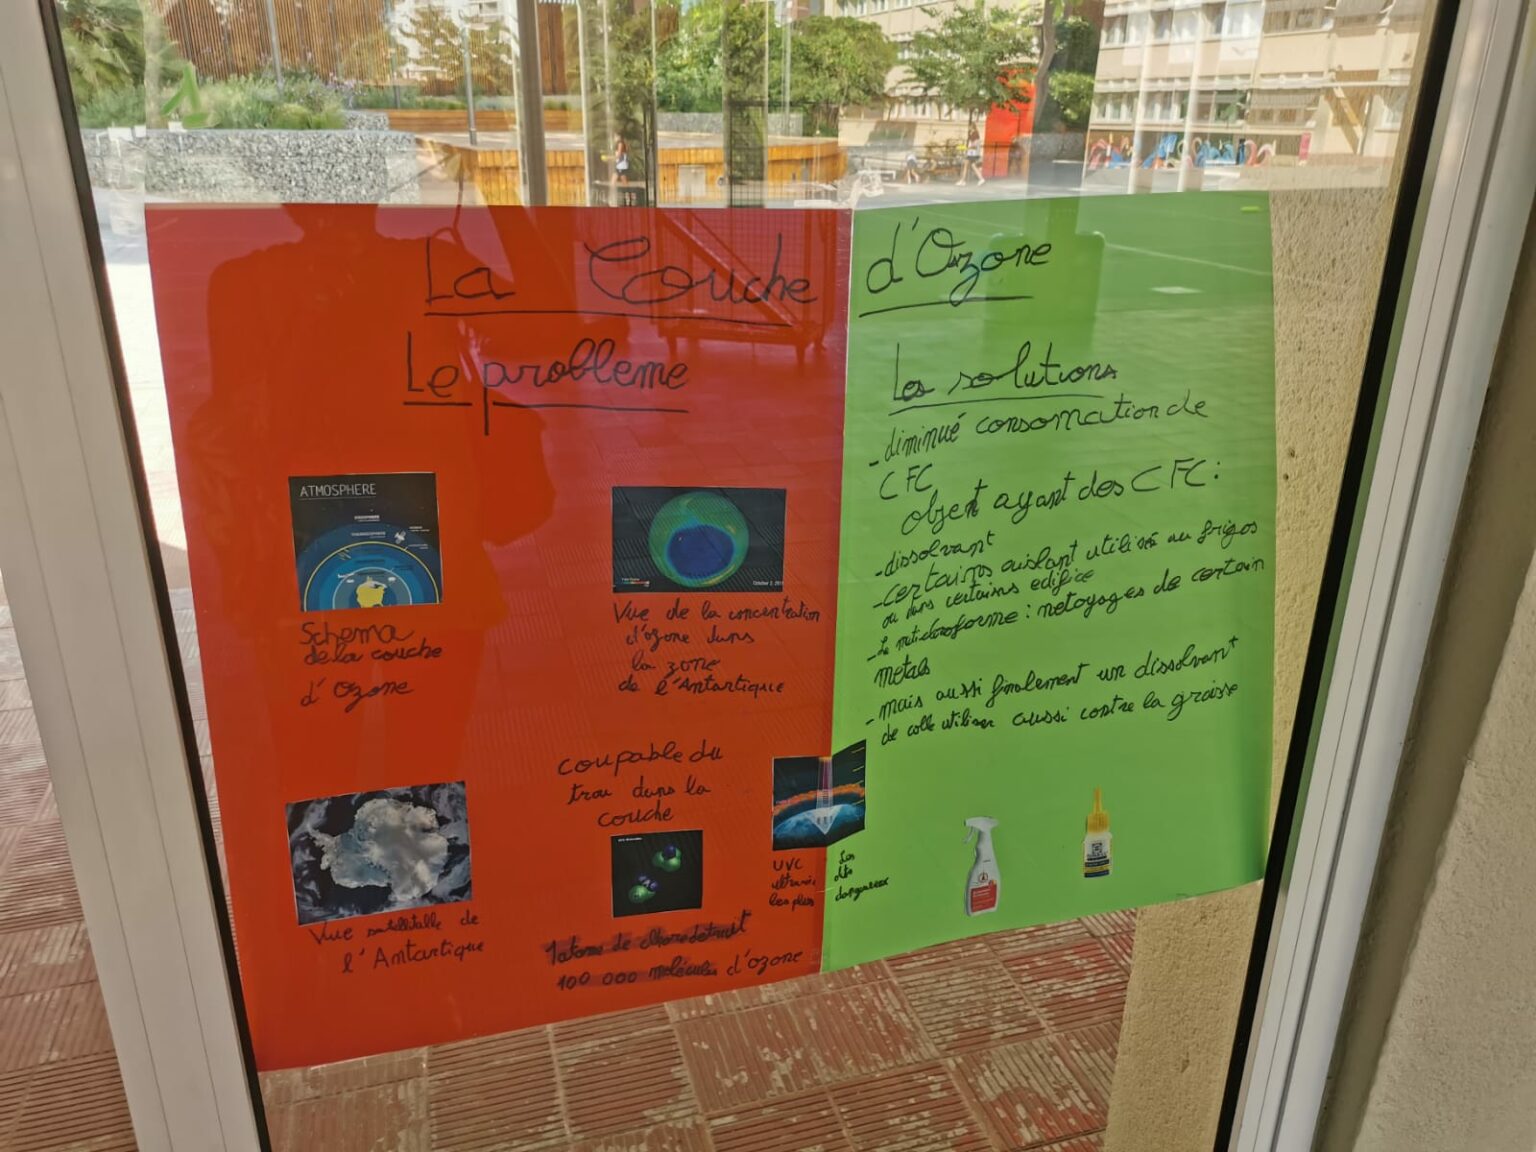 La Couche d'Ozone
Le probleme
ATMOSPHERE
Schema
de la couche
d'Ozone
Vue de la concentration
d'ozone dans
la zone
de l'Antartique
Vue satellitalle de
l'Antartique
coupable du
trou dans la
couche
1 atome de chlore detruit
100 000 molécules d'ozone
UVC
ultraviolés
les plus
dangereux
Les solutions
- diminué consomation de
CFC
objet ayant des CFC :
- dissolvant
- certains utilisé au frigos
ou dans certaines edifice
- Le : netoyages de certain
metals
- mais aussi finalement un dissolvant
de colle utiliser aussi contre la graisse